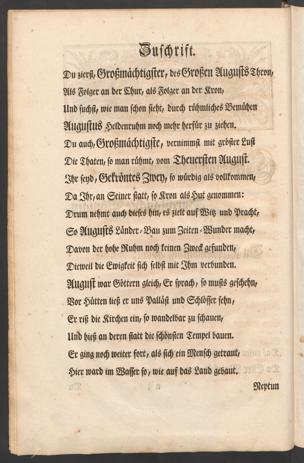 Zuschrift.
Du zierst, Großmächtigster, des Großen Augusts Thron,
Als Folger an der Chur, als Folger an der Kron,
Und suchst, wie man schon sieht, durch rühmliches Bemühen
Augustus Heldenruhm noch mehr herfür zu ziehen.
Du auch, Großmächtigste, vernimmst mit größter Lust
Die Thaten, so man rühmt, vom Theuersten August.
Ihr seyd, Gekröntes Zwey, so würdig als vollkommen,
Da Ihr, an Seiner statt, so Kron als Hut genommen:
Drum nehmt auch dieses hin, es zielt auf Witz und Pracht,
So Augusts Länder-Bau zum Zeiten-Wunder macht,
Davon der hohe Ruhm noch keinen Zweck gefunden,
Dieweil die Ewigkeit sich selbst mit Ihm verbunden.
August war Göttern gleich, Er sprach, so musts geschehn,
Vor Hütten ließ er uns Palläst und Schlösser sehn,
Er riß die Kirchen ein, so wandelbar zu schauen,
Und hieß an deren statt die schönsten Tempel bauen.
Er ging noch weiter fort, als sich ein Mensch getraut,
Hier ward im Wasser so, wie auf das Land gebaut.
Neptun